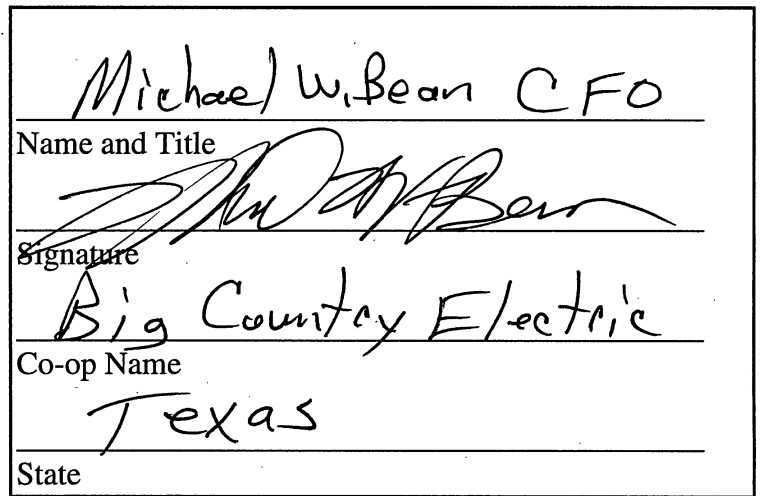 Michael W. Bean CFO
Name and Title
Signature
Big Country Electric
Co-op Name
Texas
State